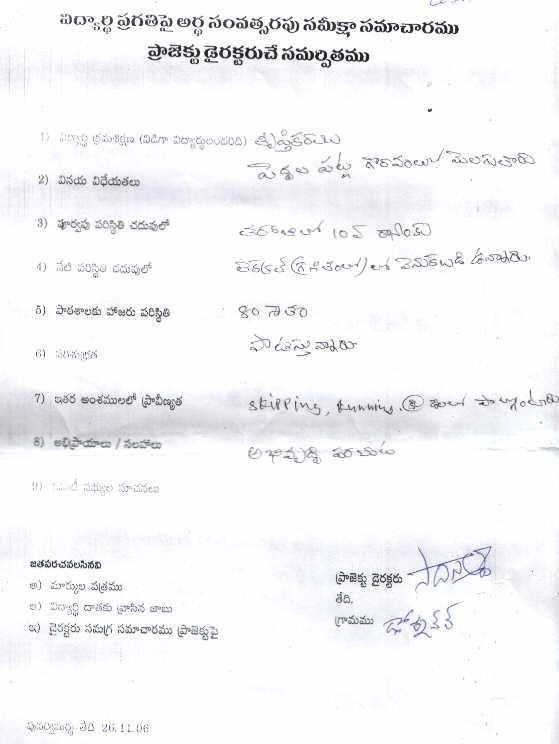 విద్యార్థి ప్రగతిపై అర్థ సంవత్సరపు సమీక్షా సమాచారము
ప్రాజెక్టు డైరక్టరుచే సమర్పితము
1) విద్యార్థి క్రమశిక్షణ (విడిగా విద్యార్థులందరిది) తృప్తికరము
2) వినయ విధేయతలు పెద్దల పట్ల గౌరవంలు మెలగుతారు
3) పూర్వపు పరిస్థితి చదువులో తరగతిలో 10వ ర్యాంకు
4) నేటి పరిస్థితి చదువులో లెక్కల (గణితంలో) లో వెనుకబడి ఉన్నారు.
5) పాఠశాలకు హాజరు పరిస్థితి 80 శాతం
6) పరిశుభ్రత పాటిస్తున్నారు
7) ఇతర అంశములలో ప్రావీణ్యత skipping, running, లో పాల్గొంటారు
8) అభిప్రాయాలు / సలహాలు అభివృద్ధి పరచుట
9) కమిటీ సభ్యుల సూచనలు
జతపరచవలసినవి
అ) మార్కుల పత్రము
ఆ) విద్యార్థి దాతకు వ్రాసిన జాబు
ఇ) డైరక్టరు సమగ్ర సమాచారము ప్రాజెక్టుపై
ప్రాజెక్టు డైరక్టరు
తేది.
గ్రామము
పునర్విమర్శ తేది 26.11.06